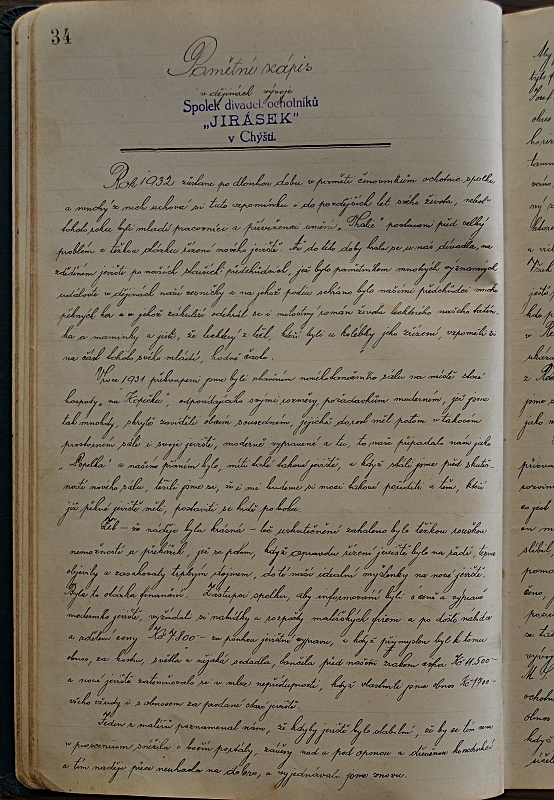 34
Pamětní zápis
v dějinách vývoje
Spolek divadel. ochotníků
„JIRÁSEK"
v Chýšti.
Rok 1932 zůstane po dlouhou dobu v paměti činovníkům ochotnic. spolku
a mnohý z nich uchová si tuto vzpomínku i do pozdějších let svého života, neboť
tohoto roku byli mladí pracovníci a příznivci umění „Thalie" postaveni před velký
problém a těžkou otázku řízení nového jeviště. Až do této doby hrálo se u nás divadlo, na
zděděném jevišti po našich starších předchůdcích, jež bylo památníkem mnohých významných
událostí v dějinách naší vesničky a na jehož podiu sehráno bylo našimi předchůdci mnoho
pěkných her a v jehož zákulisí odehrál se i milostný román života leckterého našeho tatín-
ka a maminky a jistě, že leckterý z těch, kteří byli u kolébky jeho zrození, vzpomělí si
na část tohoto svého mládí, hodně často.
V roce 1931 překvapeni jme byli stavěním nového sálu na místě staré
hospody „na Kopečku" odpovídajícího svými rozměry požadavkům moderním, jež jsme
tak mnohdy, skrytě záviděli obcím sousedním, jejichž dorost měl potom v takovém
prostorném sále i svoje jeviště, moderně vypravené a tu, to naše připadalo nám jako
„Popelka" a naším přáním bylo, míti také takové jeviště, a když stáli jsme před skuteč-
ností nového sálu, těšili jsme se, že i my budeme si moci takové poříditi a těm, kteří
již pěkné jeviště měli, postaviti se hrdě po boku.
Leč – že naděje byla krásná – leč uskutečnění zahaleno bylo těžkou rouškou
nemožností a překážek, jež se potom, když opravdu řízení jeviště bylo na řadě, teprve
objevily a zaútočily trpkým dojmem, do té naší ideální myšlenky na nové jeviště.
Byla to otázka finanční. Zástupci spolku, aby informováni byli o ceně a výpravě
moderního jeviště, vyžádali si nabídky a rozpočty malířských firem a po došlé nabídce
a sdělení ceny Kč 7.500– za pouhou jevištní výpravu, a když přimyslem byl k tomu
obnos, za kostru, světla a nějaká sedadla, tančila před naším zrakem cifra Kč 11.500–
a nové jeviště zatemňovalo se v mlze nepřístupnosti, když vlastnili jsme obnos Kč 1700–
všeho všudy i s obnosem za prodané staré jeviště.
Jeden z malířů poznamenal nám, že kdyby jeviště bylo stabilní, že by se tím cena
v porovnání snížila o boční portály, závěsy nad a pod oponou a dřevěnou konstrukci
a tím naděje přece neuhasla na dobro, a vyjednávali jsme znovu.